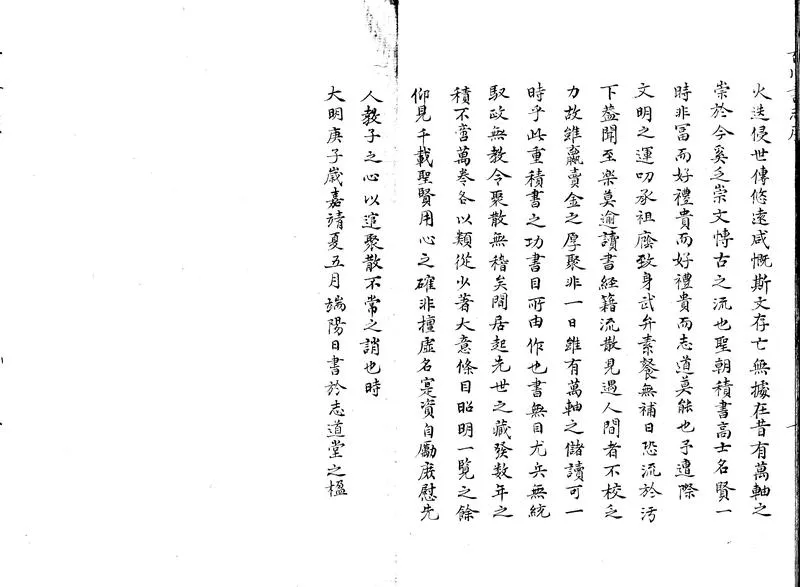 火迭侵世傳悠遠咸慨斯文存亡無據在昔有萬軸之
崇於今奚乏崇文慱古之流也聖朝積書高士名賢一
時非冨而好禮貴而好禮貴而志道莫能也予遭際
文明之運叨承祖廕致身武弁素餐無補日恐流於汚
下蓋聞至樂莫逾讀書經籍流散見遇人間者不校乏
力故雖贏賣金之厚聚非一日雖有萬軸之儲讀可一
時乎此重積書之功書目所由作也書無目尤兵無統
馭政無教令聚散無稽矣閒居起先世之藏發数年之
積不啻萬卷各以類從少著大意條目昭明一覧之餘
仰見千載聖賢用心之確非擅虚名寔資自勵庶慰先
人教子之心以逭聚散不常之誚也時
大明庚子嵗嘉靖夏五月端陽日書於志道堂之楹